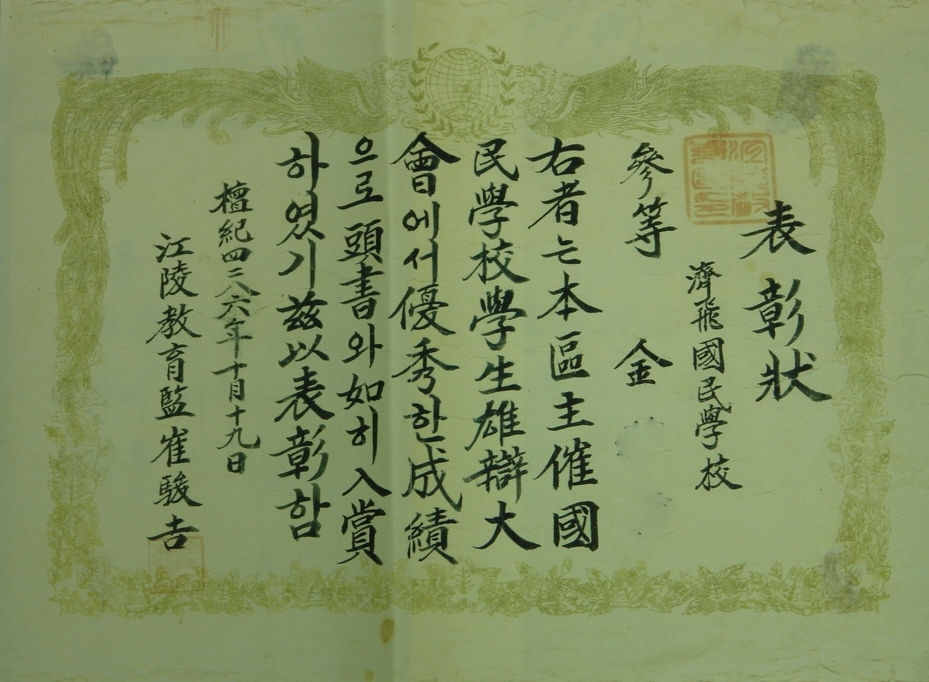 表彰狀
濟飛國民學校
參等 金
右者는本區主催國
民學校學生雄辯大
會에서優秀한成績
으로頭書와如히入賞
하였기玆以表彰함
檀紀四二八六年十月十九日
江陵教育監崔駿吉